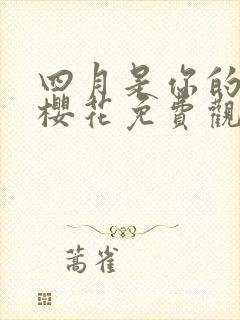 四月是你的
櫻花免費觀
蒿雀